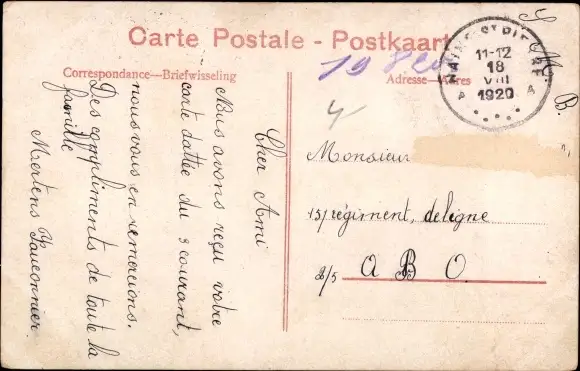 Carte Postale - Postkaart
Correspondance—Briefwisseling
Adresse—Adres
11-12
18
VIII
1920
A A
S. M.
B.
Cher Ami
Nous avons reçu votre
carte dattée du 3 courant,
nous vous en remercions.
Des compliments de toute la
famille
Mertens Fauconnier
Monsieur
15/régiment, deligne
2/5 A B O